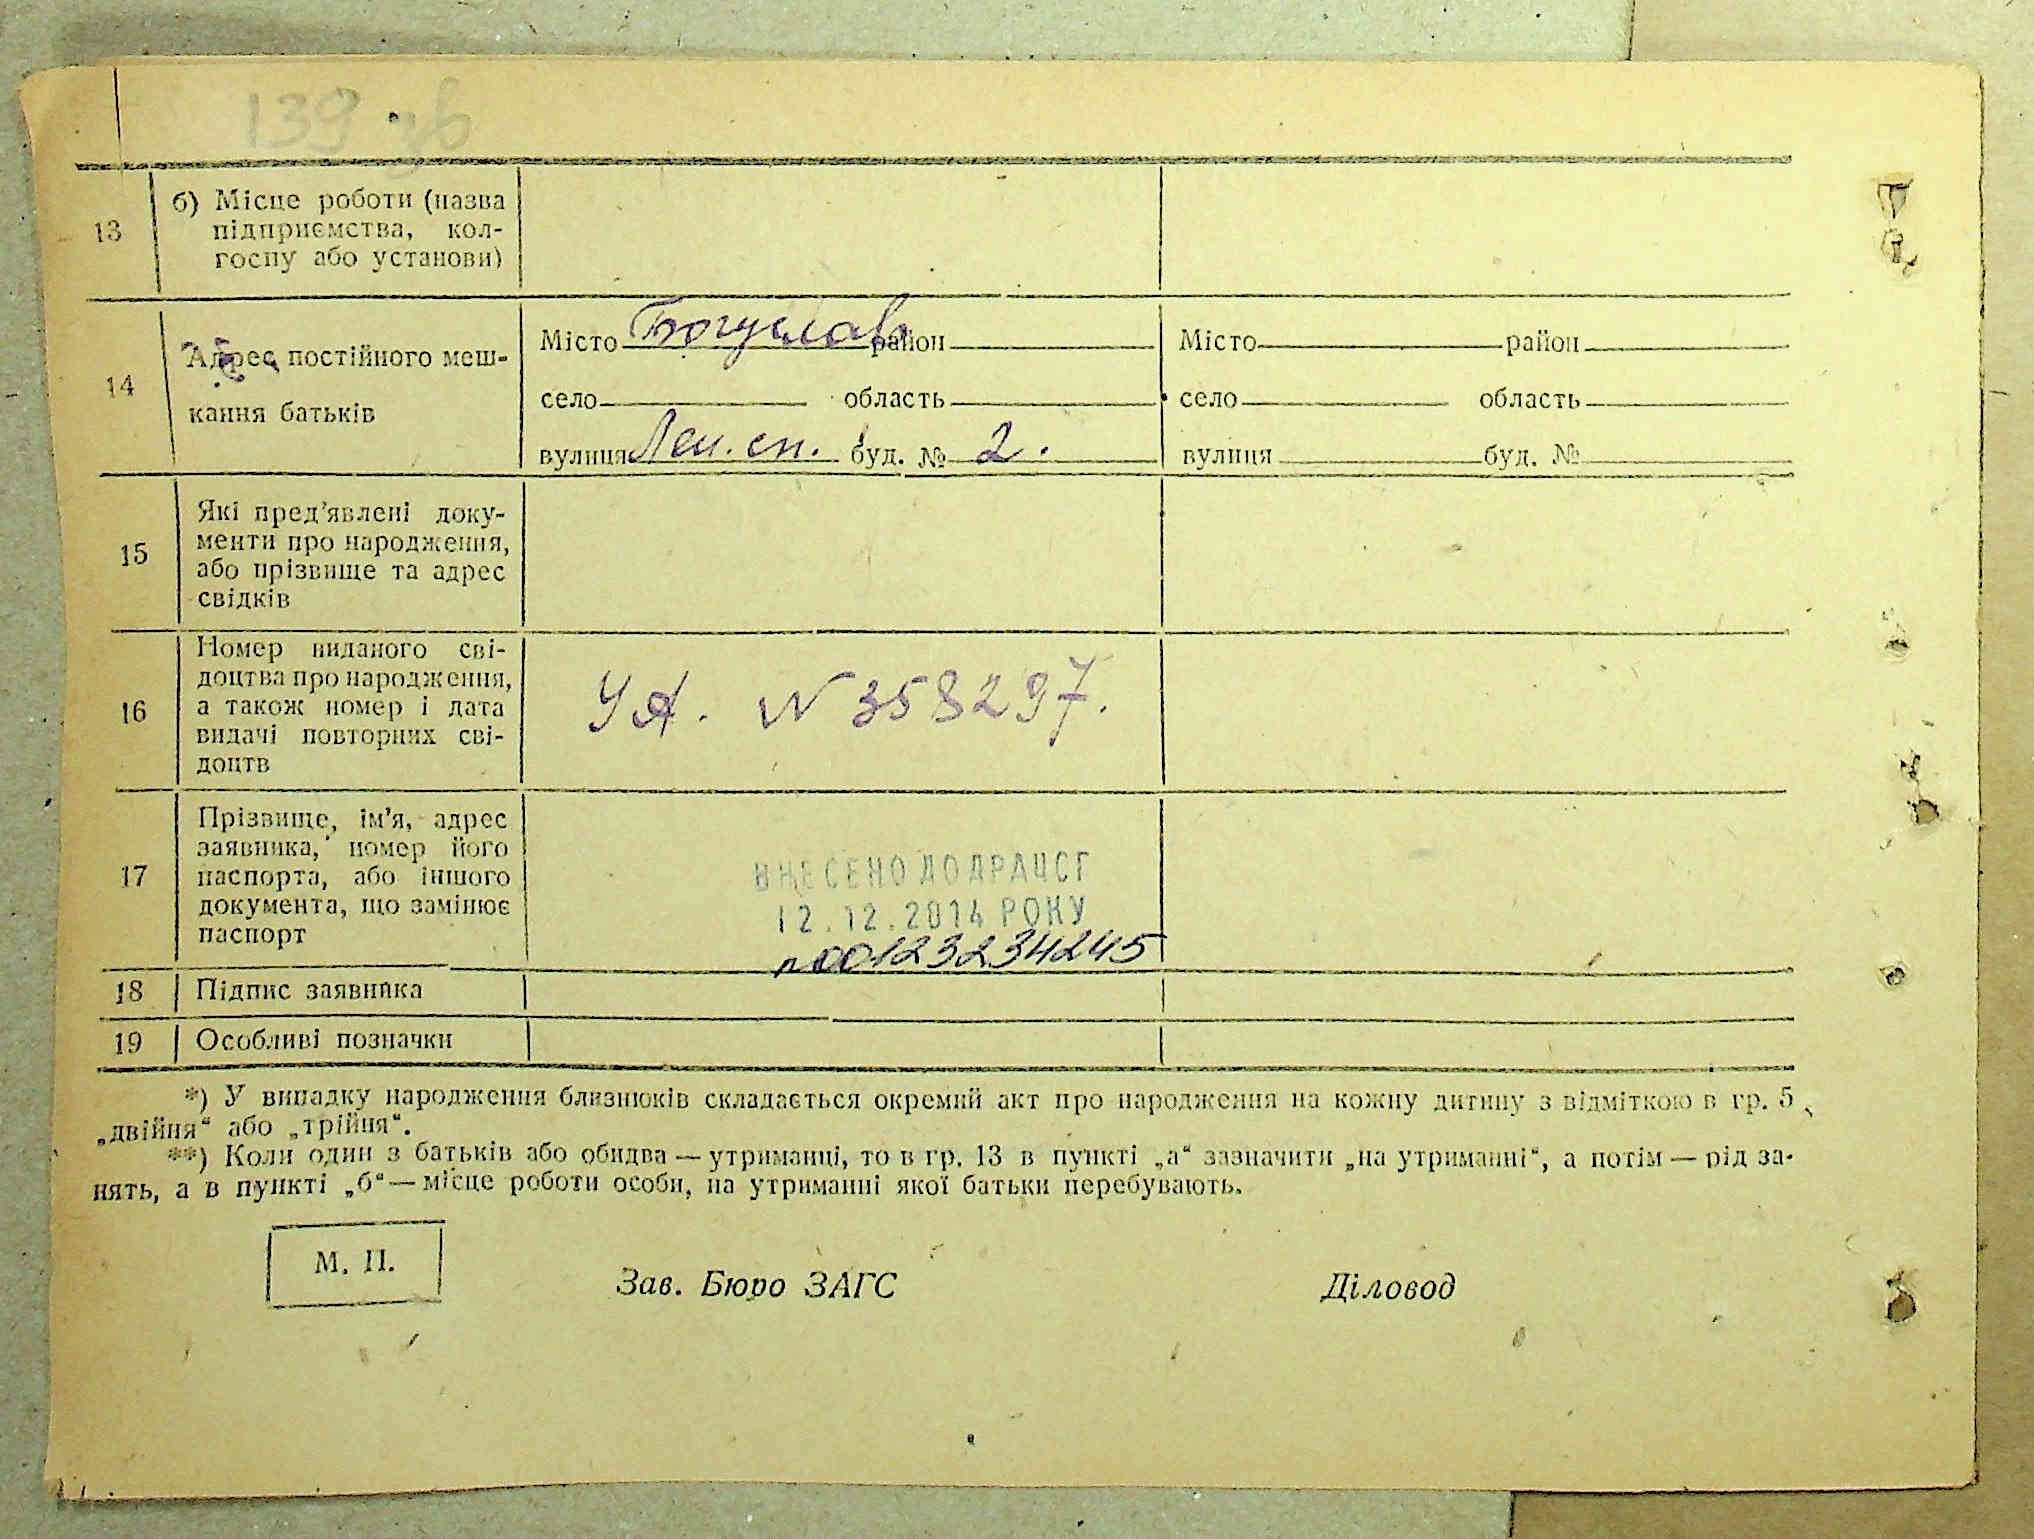 139 зв
13
б) Місце роботи (назва
підприємства, кол-
госпу або установи)
14
Адрес постійного меш-
кання батьків
Місто Богуслав район
село область
вулиця Лен. сп. буд. № 2.
Місто район
село область
вулиця буд. №
15
Які пред'явлені доку-
менти про народження,
або прізвище та адрес
свідків
16
Номер виданого сві-
доцтва про народження,
а також номер і дата
видачі повторних сві-
доцтв
УА. N 358297.
17
Прізвище, ім'я, адрес
заявника, номер його
паспорта, або іншого
документа, що замінює
паспорт
ВНЕСЕНО ДО ДРАЦСГ
12.12.2014 РОКУ
n00123234245
18
Підпис заявника
19
Особливі позначки
*) У випадку народження близнюків складається окремий акт про народження на кожну дитину з відміткою в гр. 5
„двійня“ або „трійня“.
**) Коли один з батьків або обидва — утриманці, то в гр. 13 в пункті „а“ зазначити „на утриманні“, а потім — рід за-
нять, а в пункті „б“ — місце роботи особи, на утриманні якої батьки перебувають.
М. П.
Зав. Бюро ЗАГС
Діловод